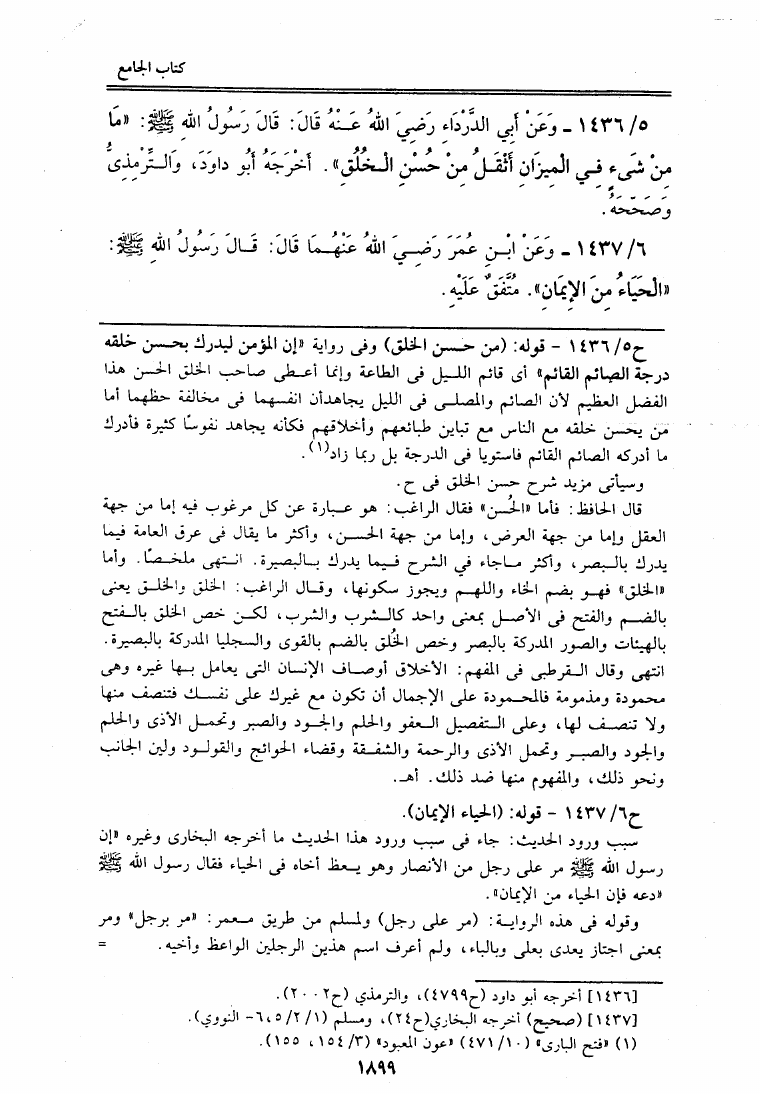 كتاب الجامع
١٤٣٦/٥ ـ وَعَنْ أَبِي الدَّرْدَاءِ رَضِيَ اللهُ عَنْهُ قَالَ: قَالَ رَسُولُ اللهِ ﷺ: «مَا
مِنْ شَيْءٍ فِي الْمِيزَانِ أَثْقَلُ مِنْ حُسْنِ الْخُلُقِ». أَخْرَجَهُ أَبُو دَاوُدَ، وَالتِّرْمِذِيُّ
وَصَحَّحَهُ.
١٤٣٧/٦ ـ وَعَنْ ابْنِ عُمَرَ رَضِيَ اللهُ عَنْهُمَا قَالَ: قَالَ رَسُولُ اللهِ ﷺ:
«الْحَيَاءُ مِنَ الإِيمَانِ». مُتَّفَقٌ عَلَيْهِ.
ح١٤٣٦/٥ - قوله: (من حسن الخلق) وفى رواية «إن المؤمن ليدرك بحسن خلقه
درجة الصائم القائم» أى قائم الليل فى الطاعة وإنما أعطى صاحب الخلق الحسن هذا
الفضل العظيم لأن الصائم والمصلى فى الليل يجاهدأن انفسهما فى مخالفة حظهما أما
من يحسن خلقه مع الناس مع تباين طبائعهم وأخلاقهم فكأنه يجاهد نفوسًا كثيرة فأدرك
ما أدركه الصائم القائم فاستويا فى الدرجة بل ربما زاد(١).
وسيأتى مزيد شرح حسن الخلق فى ح.
قال الحافظ: فأما «الحُسن» فقال الراغب: هو عبارة عن كل مرغوب فيه إما من جهة
العقل وإما من جهة العرض، وإما من جهة الحسن، وأكثر ما يقال فى عرق العامة فيما
يدرك بالبصر، وأكثر ماجاء في الشرح فيما يدرك بالبصيرة. انتهى ملخصًا. وأما
«الخلق» فهو بضم الخاء واللهم ويجوز سكونها، وقال الراغب: الخلق والخلق يعنى
بالضم والفتح فى الأصل بمعنى واحد كالشرب والشرب، لكن خص الخلق بالفتح
بالهيئات والصور المدركة بالبصر وخص الخُلق بالضم بالقوى والسجليا المدركة بالبصيرة.
انتهى وقال القرطبى فى المفهم: الأخلاق أوصاف الإنسان التى يعامل بها غيره وهى
محمودة ومذمومة فالمحمودة على الإجمال أن تكون مع غيرك على نفسك فتنصف منها
ولا تنصف لها، وعلى التفصيل العفو والحلم والجود والصبر وتحمل الأذى والحلم
والجود والصبر وتحمل الأذى والرحمة والشفقة وقضاء الحوائج والقولود ولين الجانب
ونحو ذلك، والمفهوم منها ضد ذلك. أهـ.
ح١٤٣٧/٦ - قوله: (الحياء الإيمان).
سبب ورود الحديث: جاء فى سبب ورود هذا الحديث ما أخرجه البخارى وغيره «إن
رسول الله ﷺ مر على رجل من الأنصار وهو يعظ أخاه فى الحياء فقال رسول الله ﷺ
«دعه فإن الحياء من الإيمان».
وقوله فى هذه الرواية: (مر على رجل) ولمسلم من طريق معمر: «مر برجل» ومر
بمعنى اجتاز يعدى بعلى وبالباء، ولم أعرف اسم هذين الرجلين الواعظ وأخيه. =
[١٤٣٦] أخرجه أبو داود (ح٤٧٩٩)، والترمذي (ح٢٠٠٢).
[١٤٣٧] (صحيح) أخرجه البخاري(ح٢٤)، ومسلم (٦،٥/٢/١- النووي).
(١) «فتح البارى» (٤٧١/١٠) «عون المعبود» (١٥٤/٣، ١٥٥).
١٨٩٩